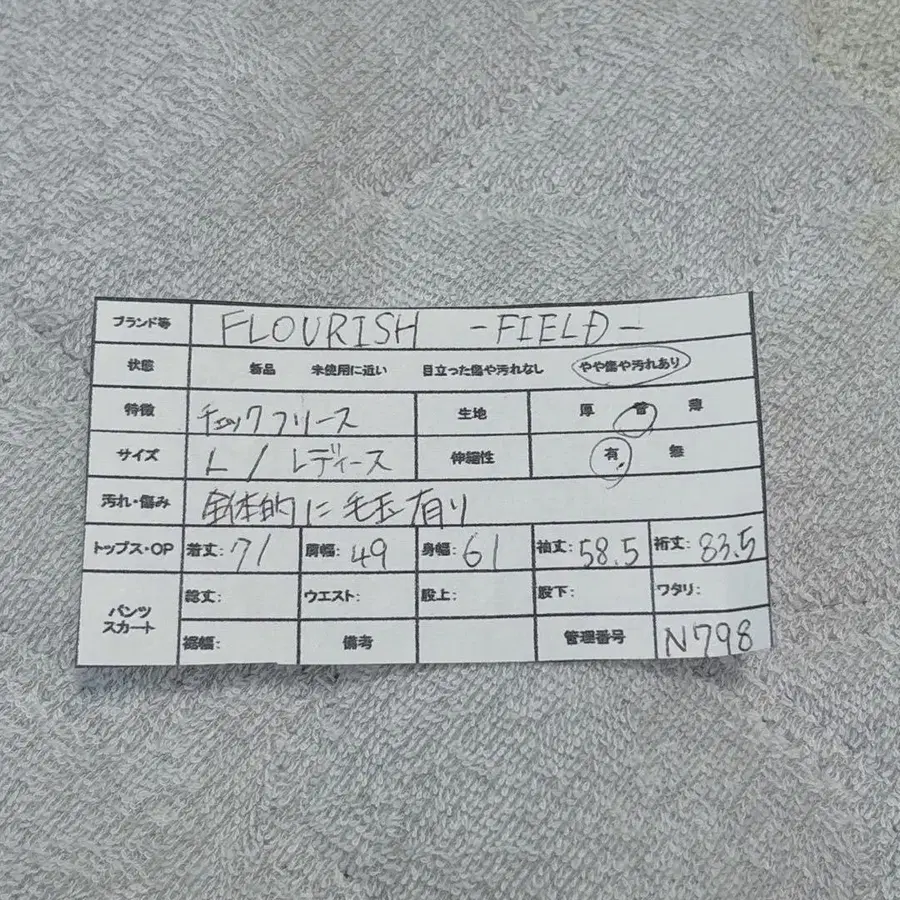 ブランド等 FLOURISH -FIELD-
状態 新品 未使用に近い 目立った傷や汚れなし やや傷や汚れあり
特徴 チェックフリース 生地 厚 普 薄
サイズ L / レディース 伸縮性 有 無
汚れ・傷み 全体的に毛玉有り
トップス・OP 着丈: 71 肩幅: 49 身幅: 61 袖丈: 58.5 裄丈: 83.5
パンツ スカート 総丈: ウエスト: 股上: 股下: ワタリ:
裾幅: 備考 管理番号 N798